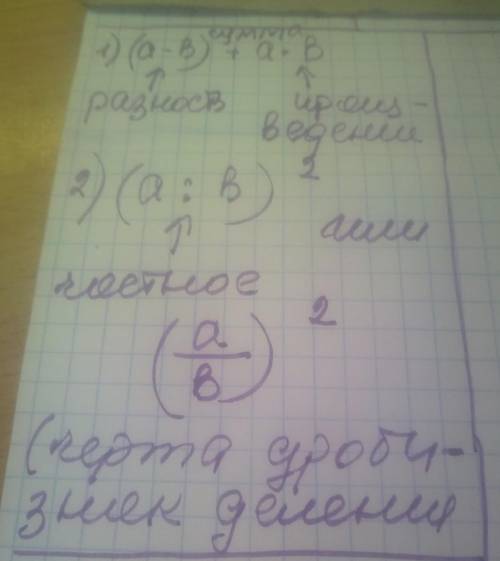 сумма
1) (а-в) + а · в
↑ ↑
разность произ-
ведении
2) (а : в)²
↑ или
частное
(а/в)²
(черта дроби-
знак деления